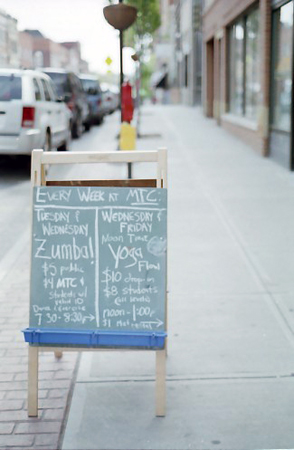 EVERY WEEK AT MTC
TUESDAY &
WEDNESDAY
Zumba!
$5 public
$4 MTC &
Students w/
valid ID
7:30-8:30p
WEDNESDAY &
FRIDAY
Noon Time
Yoga
Flow
$10 drop-in
$8 students
all levels
noon-1:00p